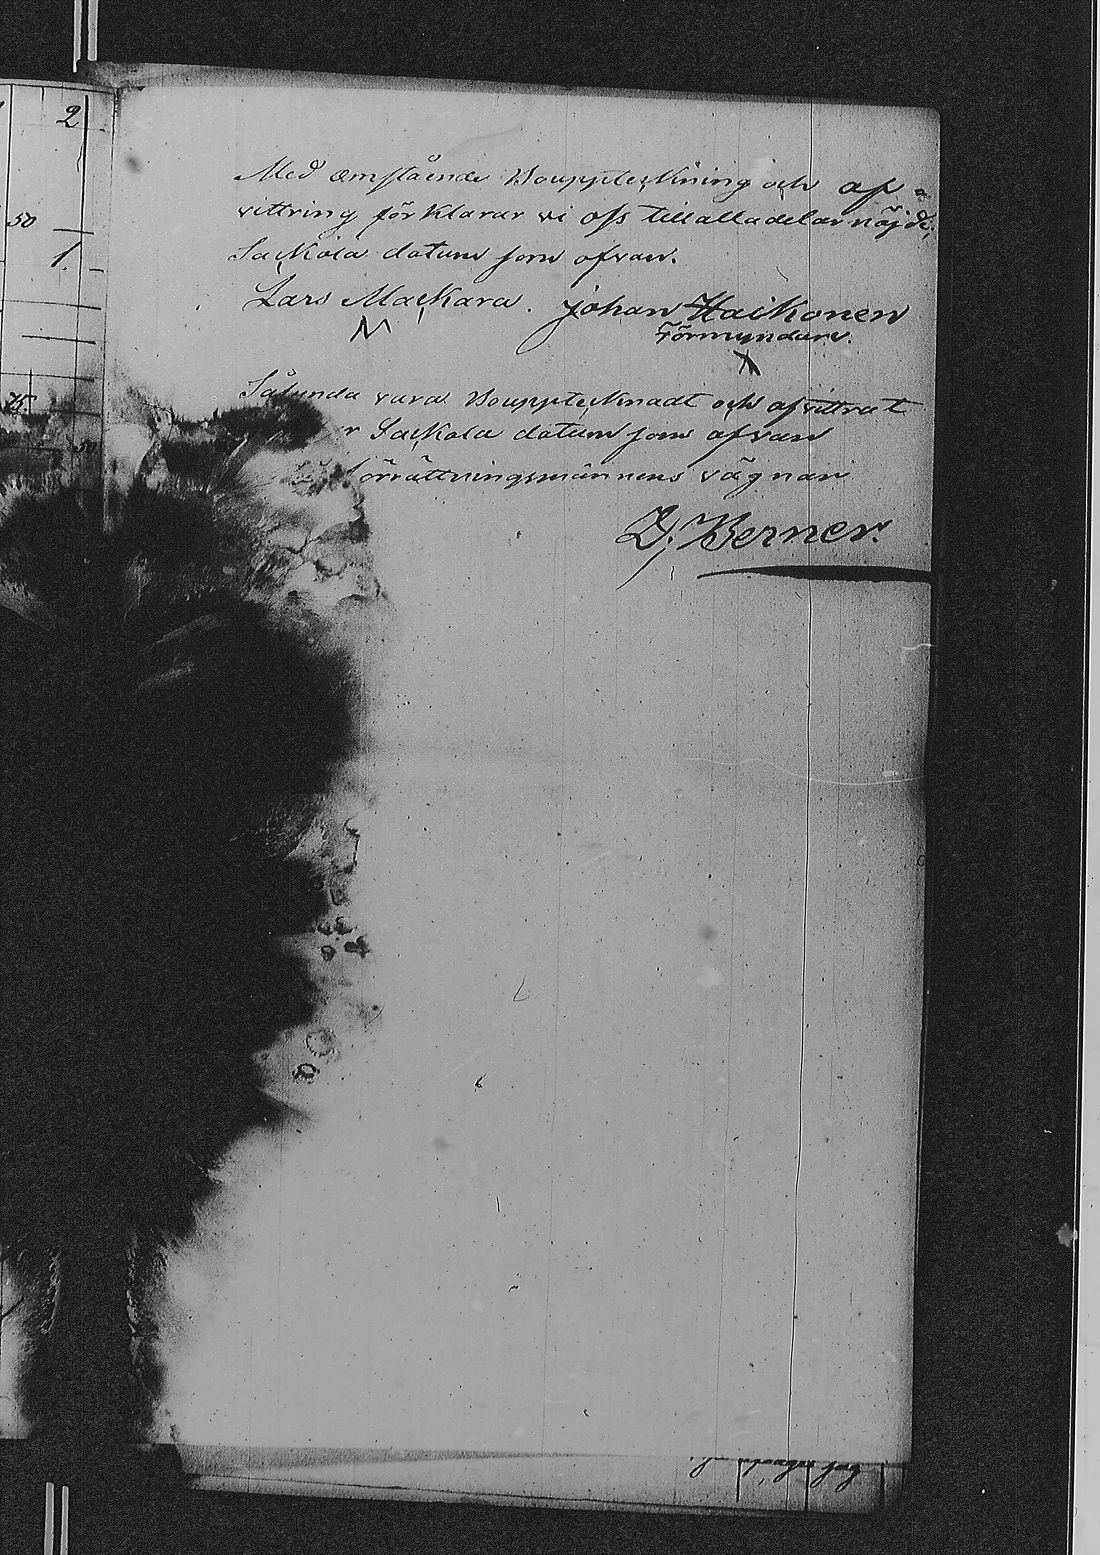 2
50
1. –
75
50
Med omstående Bouppteckning och af=
vittring förklarar vi oss till alla delar nöjde,
Sackola datum som ofvan.
Lars Mackara. Johan Haikonen
Förmyndare.
Sålunda vara Boupptecknadt och afvittrat
r Sackola datum som ofvan
örrättningsmännens vägnar
Berner.